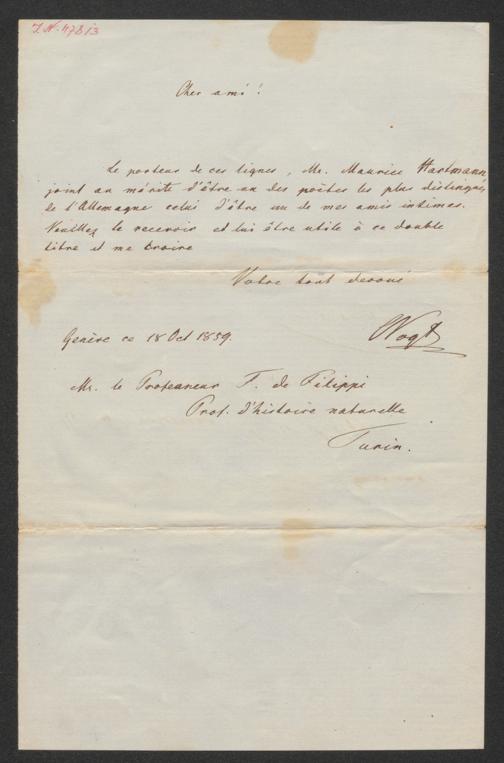 I.N. 47813
Cher ami!
Le porteur de ces lignes, Mr. Maurice Hartmann,
joint au mérite d'être un des poètes les plus distingués
de l'Allemagne celui d'être un de mes amis intimes.
Veuillez le recevoir et lui être utile à ce double
titre et me croire
Votre tout devoué
Vogt
Genève ce 18 Oct 1859.
Mr. le Professeur F. de Filippi
Prof. d'histoire naturelle
Turin.